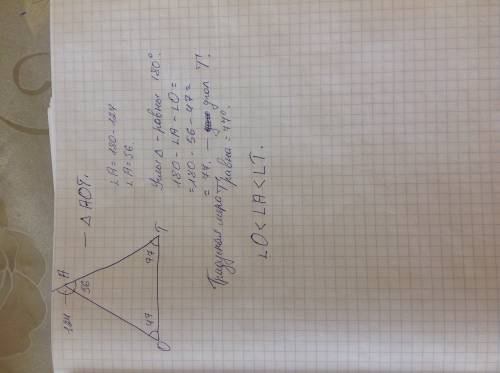 124
A
56
O
47
T
77
— △ AOT.
∠A = 180 - 124
∠A = 56.
Углы △ - равны 180°.
180 - ∠A - ∠O =
= 180 - 56 - 47 =
= 77. — угол T.
Градусная мера T
равна = 77°.
∠O < ∠A < ∠T.